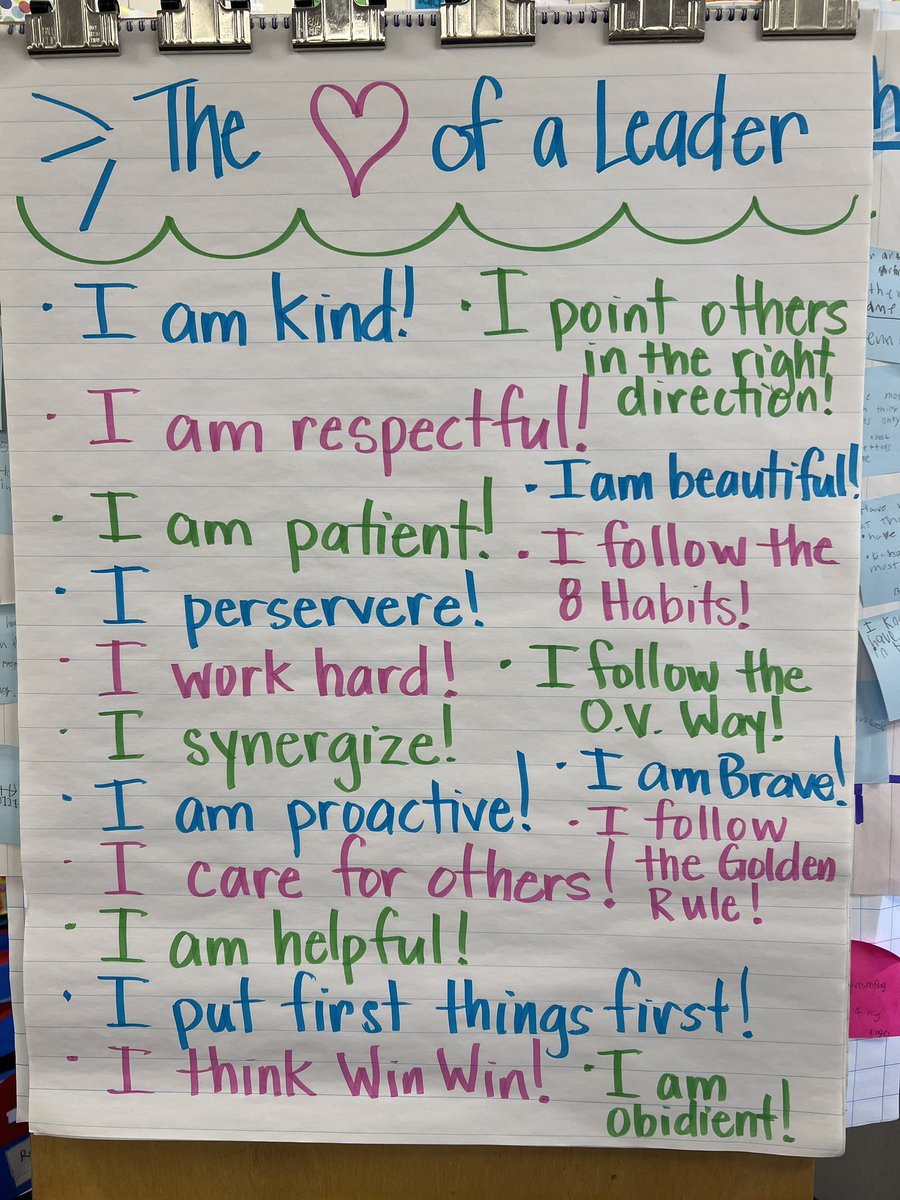 The ♡ of a Leader
· I am kind!
· I am respectful!
· I am patient!
· I perservere!
· I work hard!
· I synergize!
· I am proactive!
· I care for others!
· I am helpful!
· I put first things first!
· I think Win Win!
· I point others
in the right
direction!
· I am beautiful!
· I follow the
8 Habits!
· I follow the
O.V. Way!
· I am Brave!
· I follow
the Golden
Rule!
· I am
obidient!